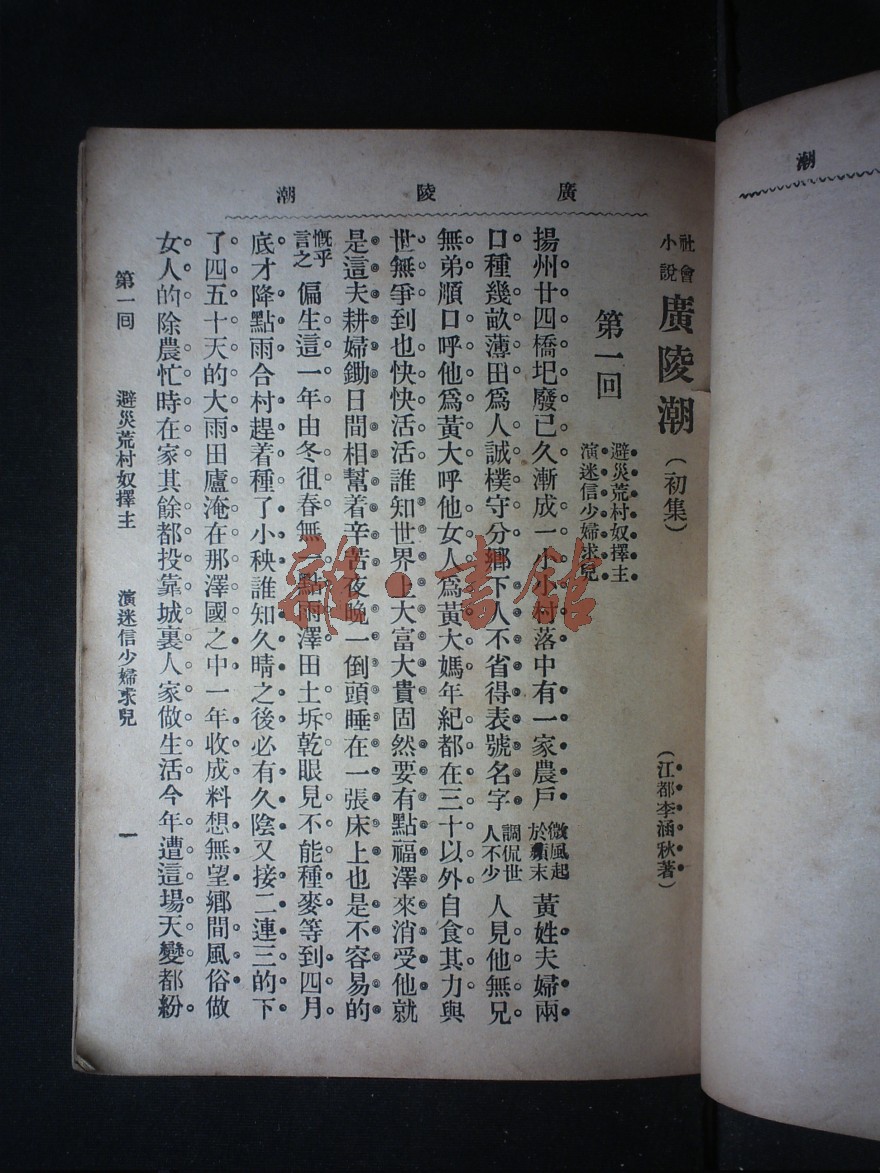 潮
廣陵潮
社會小說 廣陵潮（初集）
（江都李涵秋著）
第一回
避災荒村奴擇主
演迷信少婦求兒
揚州廿四橋圯廢已久漸成一小小村落中有一家農戶 微風起於蘋末 黃姓夫婦兩
口種幾畝薄田爲人誠樸守分鄉下人不省得表號名字 調侃世人不少 人見他無兄
無弟順口呼他爲黃大呼他女人爲黃大媽年紀都在三十以外自食其力與
世無爭到也快快活活誰知世界上大富大貴固然要有點福澤來消受他就
是這夫耕婦鋤日間相幫着辛苦夜晚一倒頭睡在一張床上也是不容易的
慨乎言之 偏生這一年由冬徂春無一點雨澤田土坼乾眼見不能種麥等到四月
底才降點雨合村趕着種了小秧誰知久晴之後必有久陰又接二連三的下
了四五十天的大雨田廬淹在那澤國之中一年收成料想無望鄉間風俗做
女人的除農忙時在家其餘都投靠城裏人家做生活今年遭這場天變都紛
第一回 避災荒村奴擇主 演迷信少婦求兒 一
雜·書館